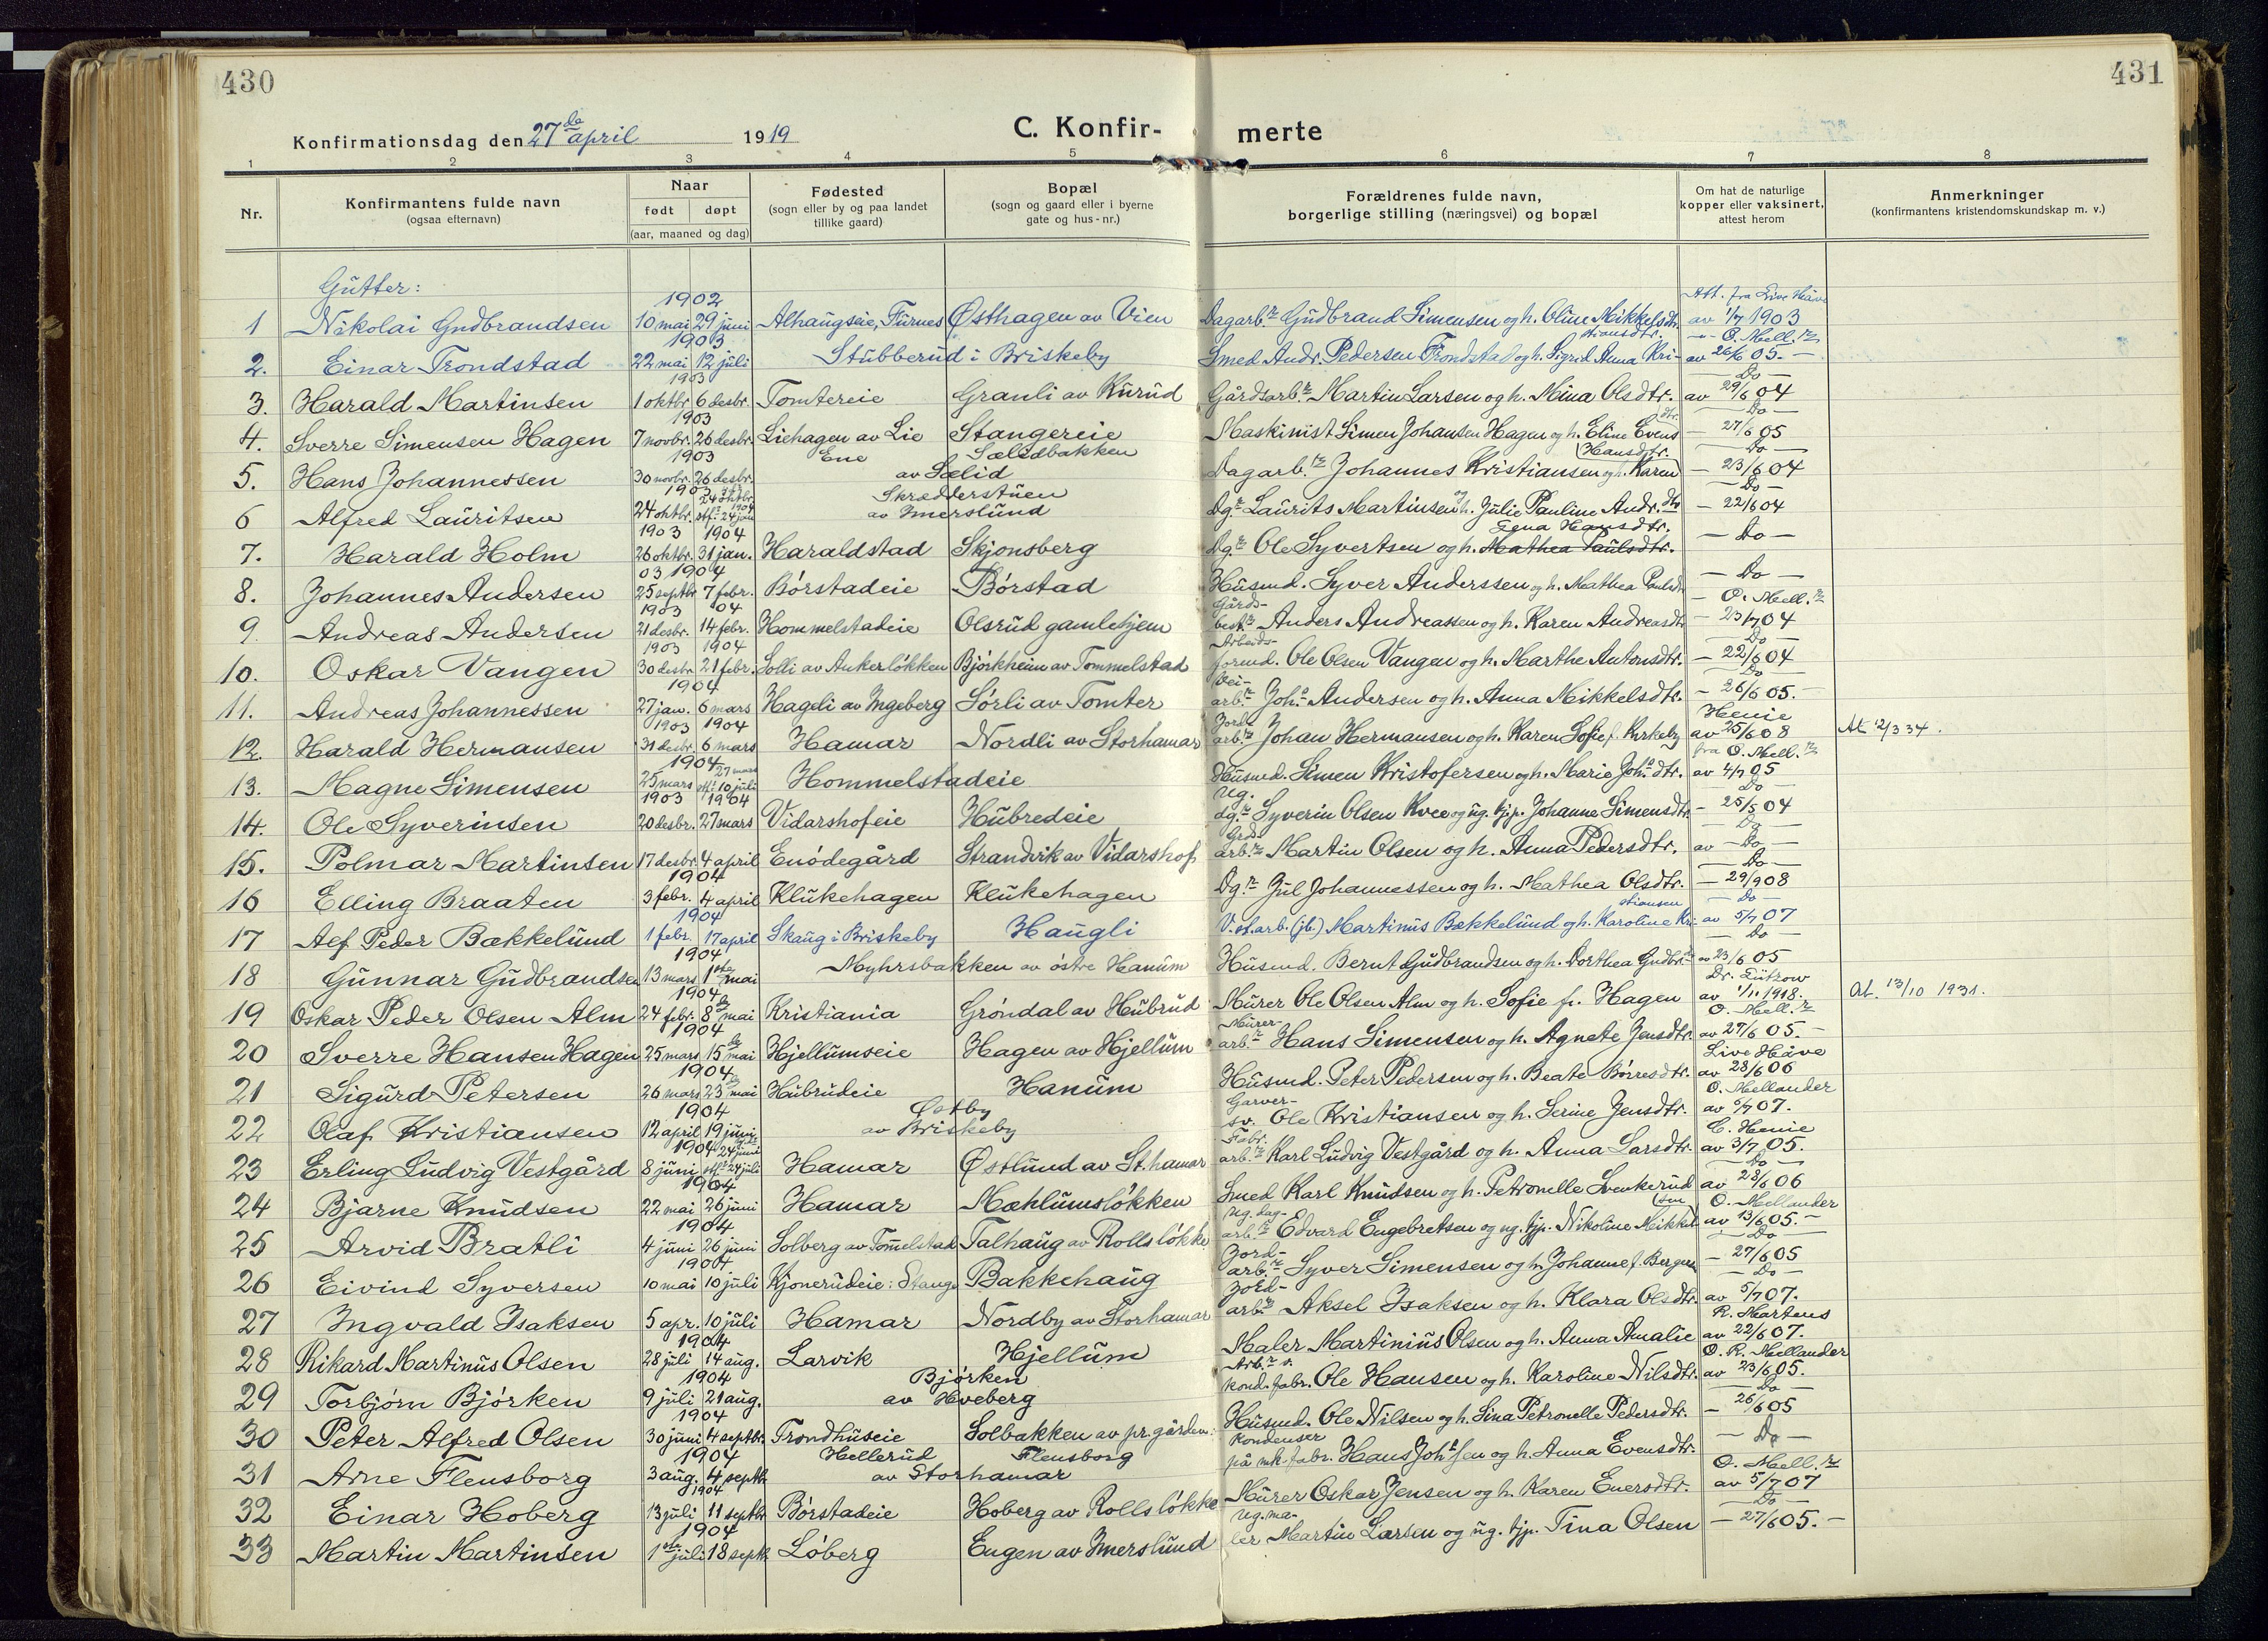 430
431
Konfirmationsdag den 27de april 1919
C. Konfir-
merte
1 2 3 4 5 6 7 8
Nr.
Konfirmantens fulde navn
(ogsaa efternavn)
Naar
født døpt
(aar, maaned og dag)
Fødested
(sogn eller by og paa landet
tillike gaard)
Bopæl
(sogn og gaard eller i byerne
gate og hus-nr.)
Forældrenes fulde navn,
borgerlige stilling (næringsvei) og bopæl
Om hat de naturlige
kopper eller vaksinert,
attest herom
Anmerkninger
(konfirmantens kristendomskundskap m. v.)
Gutter:
1 Nikolai Gudbrandsen 1902 10 mai 29 juni Alhaugseie, Furnes Østhagen av Vien Dagarb.r Gudbrand Simensen og h. Oline Mikkelsdtr. Att. fra Live Håve av 1/7 1903
2. Einar Trondstad 1903 22 mai 12 juli Stubberud i Briskeby Smed Andr. Pedersen Trondstad og h. Sigrid Anna Kristiansdtr. O. Mell.r av 26/6 05.
3. Harald Martinsen 1903 1 oktbr. 6 desbr. Tomtereie Granli av Kurud Gårdsarb.r Martin Larsen og h. Mina Olsdtr. Do av 29/6 04
4. Sverre Simensen Hagen 1903 7 novbr. 26 desbr. Liehagen av Lie Stangereie Maskinist Simen Johansen Hagen og h. Eline Evensdtr. Do 27/6 05
5. Hans Johannessen 1903 30 novbr. 26 desbr. Ene Sælidbakken av Sælid Dagarb.r Johannes Kristiansen og h. Karen Hansdtr. Do 23/6 04
6 Alfred Lauritsen 1903 24 oktbr. 24 oktbr. stf. 24 jan 1904 Skrædderstuen av Imerslund Dg.r Laurits Martinsen og h. Julie Pauline Andr.dtr. Do 22/6 04
7. Harald Holm 1903 1904 26 oktbr. 31 jan. Haraldstad Skjonsberg Dg.r Ole Syvertsen og h. Mathea Paulsdtr. Hansdtr. Do
8. Johannes Andersen 03 1904 25 septbr 7 febr. Børstadeie Børstad Husmd. Syver Anderssen og h. Mathea Paulsdtr Do
9. Andreas Andersen 1903 04 21 desbr. 14 febr. Hommelstadeie Olsrud gamlehjem Gårds-best.r Anders Andreassen og h. Karen Andreasdtr O. Mell.r 23/7 04
10. Oskar Vangen 1903 1904 30 desbr 21 febr. Solli av Ankerløkken Bjørkheim av Tommelstad Arbeids-formd. Ole Olsen Vangen og h. Marthe Antonsdtr. Do 22/6 04
11. Andreas Johannessen 1904 27 jan. 6 mars Hageli av Ingeberg Sørli av Tomter Vei-arb.r Joh.s Andersen og h. Anna Mikkelsdtr. Do 26/6 05.
12. Harald Hermansen 1903 1904 31 desbr. 6 mars Hamar Nordli av Storhamar Jord-arb.r Johan Hermansen og h. Karen Sofie f. Kirkeby Henie av 25/6 08 At 12/3 34.
13. Magne Simensen 1904 25 mars 27 mars stf. 10 juli Hommelstadeie Husmd. Simen Kristofersen og h. Marie Joh.s dtr. fra O. Mell.r av 4/7 05
14. Ole Syverinsen 1903 1904 20 desbr. 27 mars Vidarshofeie Hubredeie Ug. dg.r Syverin Olsen Kvee og ug. tjp. Johanne Simensdtr Do 25/5 04
15. Polmar Martinsen 17 desbr. 4 april Enødegård Strandvik av Vidarshof Grds-arb.r Martin Olsen og h. Anna Pedersdtr. Do av Do
16 Elling Braaten 1904 3 febr. 4 april Klukehagen Klukehagen Dg.r Jul Johannessen og h. Mathea Olsdtr. Do 29/9 08
17 Alf Peder Bækkelund 1904 1 febr. 17 april Skaug i Briskeby Haugli V.st.arb. (jb.) Martinus Bækkelund og h. Karoline Kristiansen Do av 5/7 07
18 Gunnar Gudbrandsen 1904 13 mars 1ste mai Myhrsbakken av østre Hanum Husmd. Bernt Gudbrandsen og h. Dorthea Gudbr. Do av 23/6 05
19 Oskar Peder Olsen Alm 1904 24 febr. 8de mai Kristiania Grøndal av Hubrud Murer Ole Olsen Alm og h. Sofie f. Hagen Dr. Lützow av 1/11 1918. At. 13/10 1931.
20 Sverre Hansen Hagen 1904 25 mars 15de mai Hjellumseie Hagen av Hjellum Murer-arb.r Hans Simensen og h. Agnete Jensdtr. O. Mell.r av 27/6 05.
21 Sigurd Petersen 1904 26 mars 23de mai Hubrudeie Hanum Husmd. Peter Pedersen og h. Beate Børresdtr. Live Håve av 28/6 06
22 Olaf Kristiansen 1904 12 april 19 juni Østby av Briskeby Garver-sv. Ole Kristiansen og h. Serine Jensdtr. O. Mellander av 5/7 07.
23 Erling Ludvig Vestgård 1904 8 juni 24 juni stf. 24 juli Hamar Østlund av St.hamar Fabr. arb.r Karl Ludvig Vestgård og h. Anna Larsdtr. C. Henie av 3/7 05.
24 Bjarne Knudsen 1904 22 mai 26 juni Hamar Mæhlumsløkken Smed Karl Knudsen og h. Petronelle Svenkerud Do av 28/6 06
25 Arvid Bratli 1904 4 juni 26 juni Solberg av Tommelstad Talhaug av Rolls løkke Ug. dag-arb.r Edvard Engebretsen og ug. tjp. Nikoline Mikkelsen O. Mellander av 13/6 05.
26 Eivind Syversen 1904 10 mai 10 juli Kjonerudeie: Stange Bakkehaug Jord-arb.r Syver Simensen og h. Johanne f. Bergen Do 27/6 05
27 Ingvald Isaksen 5 apr. 10 juli Hamar Nordby av Storhamar Jord-arb.r Aksel Isaksen og h. Klara Olsdtr. Do av 5/7 07.
28 Rikard Martinus Olsen 1904 28 juli 14 aug. Larvik Hjellum Maler Martinius Olsen og h. Anna Amalie R. Martens av 22/6 07.
29 Torbjørn Bjørken 1904 9 juli 21 aug. Bjørken av Hveberg Arb.r v. kond.fabr. Ole Hansen og h. Karoline Nilsdtr. O. R. Mellander av 23/6 05.
30 Peter Alfred Olsen 1904 30 juni 4 septbr. Trondhuseie Solbakken av pr.gården. Husmd. Ole Nilsen og h. Lina Petronelle Pedersdtr. Do 26/6 05
31 Arne Flensborg 1904 3 aug. 4 septbr Hellerud Flensborg av Storhamar Kondenser på mk.fabr. Hans Joh.sen og h. Anna Evensdtr. Do
32 Einar Hoberg 1904 13 juli 11 septbr Børstadeie Hoberg av Rolls løkke Murer Oskar Jensen og h. Karen Enersdtr. O. Mell.r av 5/7 07
33 Martin Martinsen 1904 1ste juli 18 septb. Løberg Engen av Imerslund Ug. ma-ler Martin Larsen og ug. tjp. Tina Olsen Do 27/6 05.